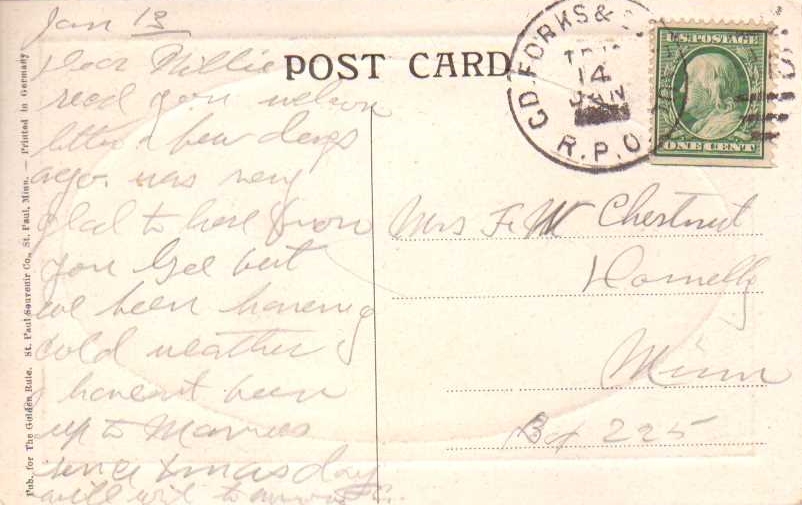 Jan 13
Dear Millie
recd your welcom
letter a few days
ago. was very
glad to here from
you Gee but
we been having
cold weather
I havent been
up to Mamies
since xmas day
will
POST CARD
GD. FORKS &
14
JAN
R.P.O.
U.S. POSTAGE
ONE CENT
Mrs F. W Chestnut
Minn
Bx 225
Pub. for The Golden Rule. St. Paul Souvenir Co., St. Paul, Minn. — Printed in Germany